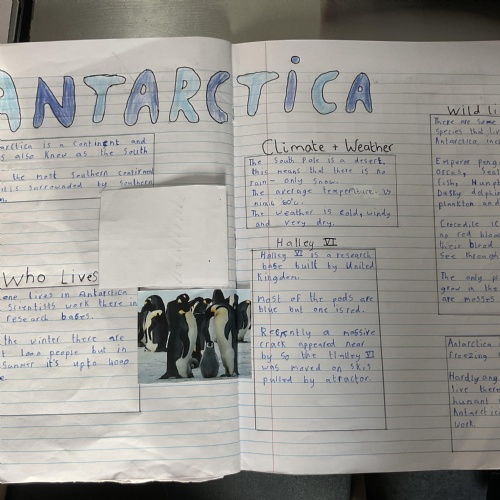 ANTARCTICA
Antarctica is a continent and
is also know as the South
the most Southern continent
surrounded by Southern
Who Lives
one lives in Antarctica
Scientists work there in
research bases.
the winter there are
1000 people but in
Summer it's upto 4000
Climate + Weather
The South Pole is a desert,
this means that there is no
rain - only snow.
The average temperature is
The weather is cold, windy
and very dry.
Halley VI
Halley VI is a research
base built by United
Kingdom.
Most of the pods are
blue but one is red.
Recently a massive
crack appeared near
by so the Halley VI
was moved on skis
pulled by a tractor.
Wild li
There are some
species that li
Antarctica inc
Emperor peng
orcas, Seal
fish, Hump
dolphin
plankton and
Crocodile ic
no red bloo
their blood
see through
The only p
grow in the
are mosses
Antarctica
freezing
Hardly any
live there
human
Antarctic
work